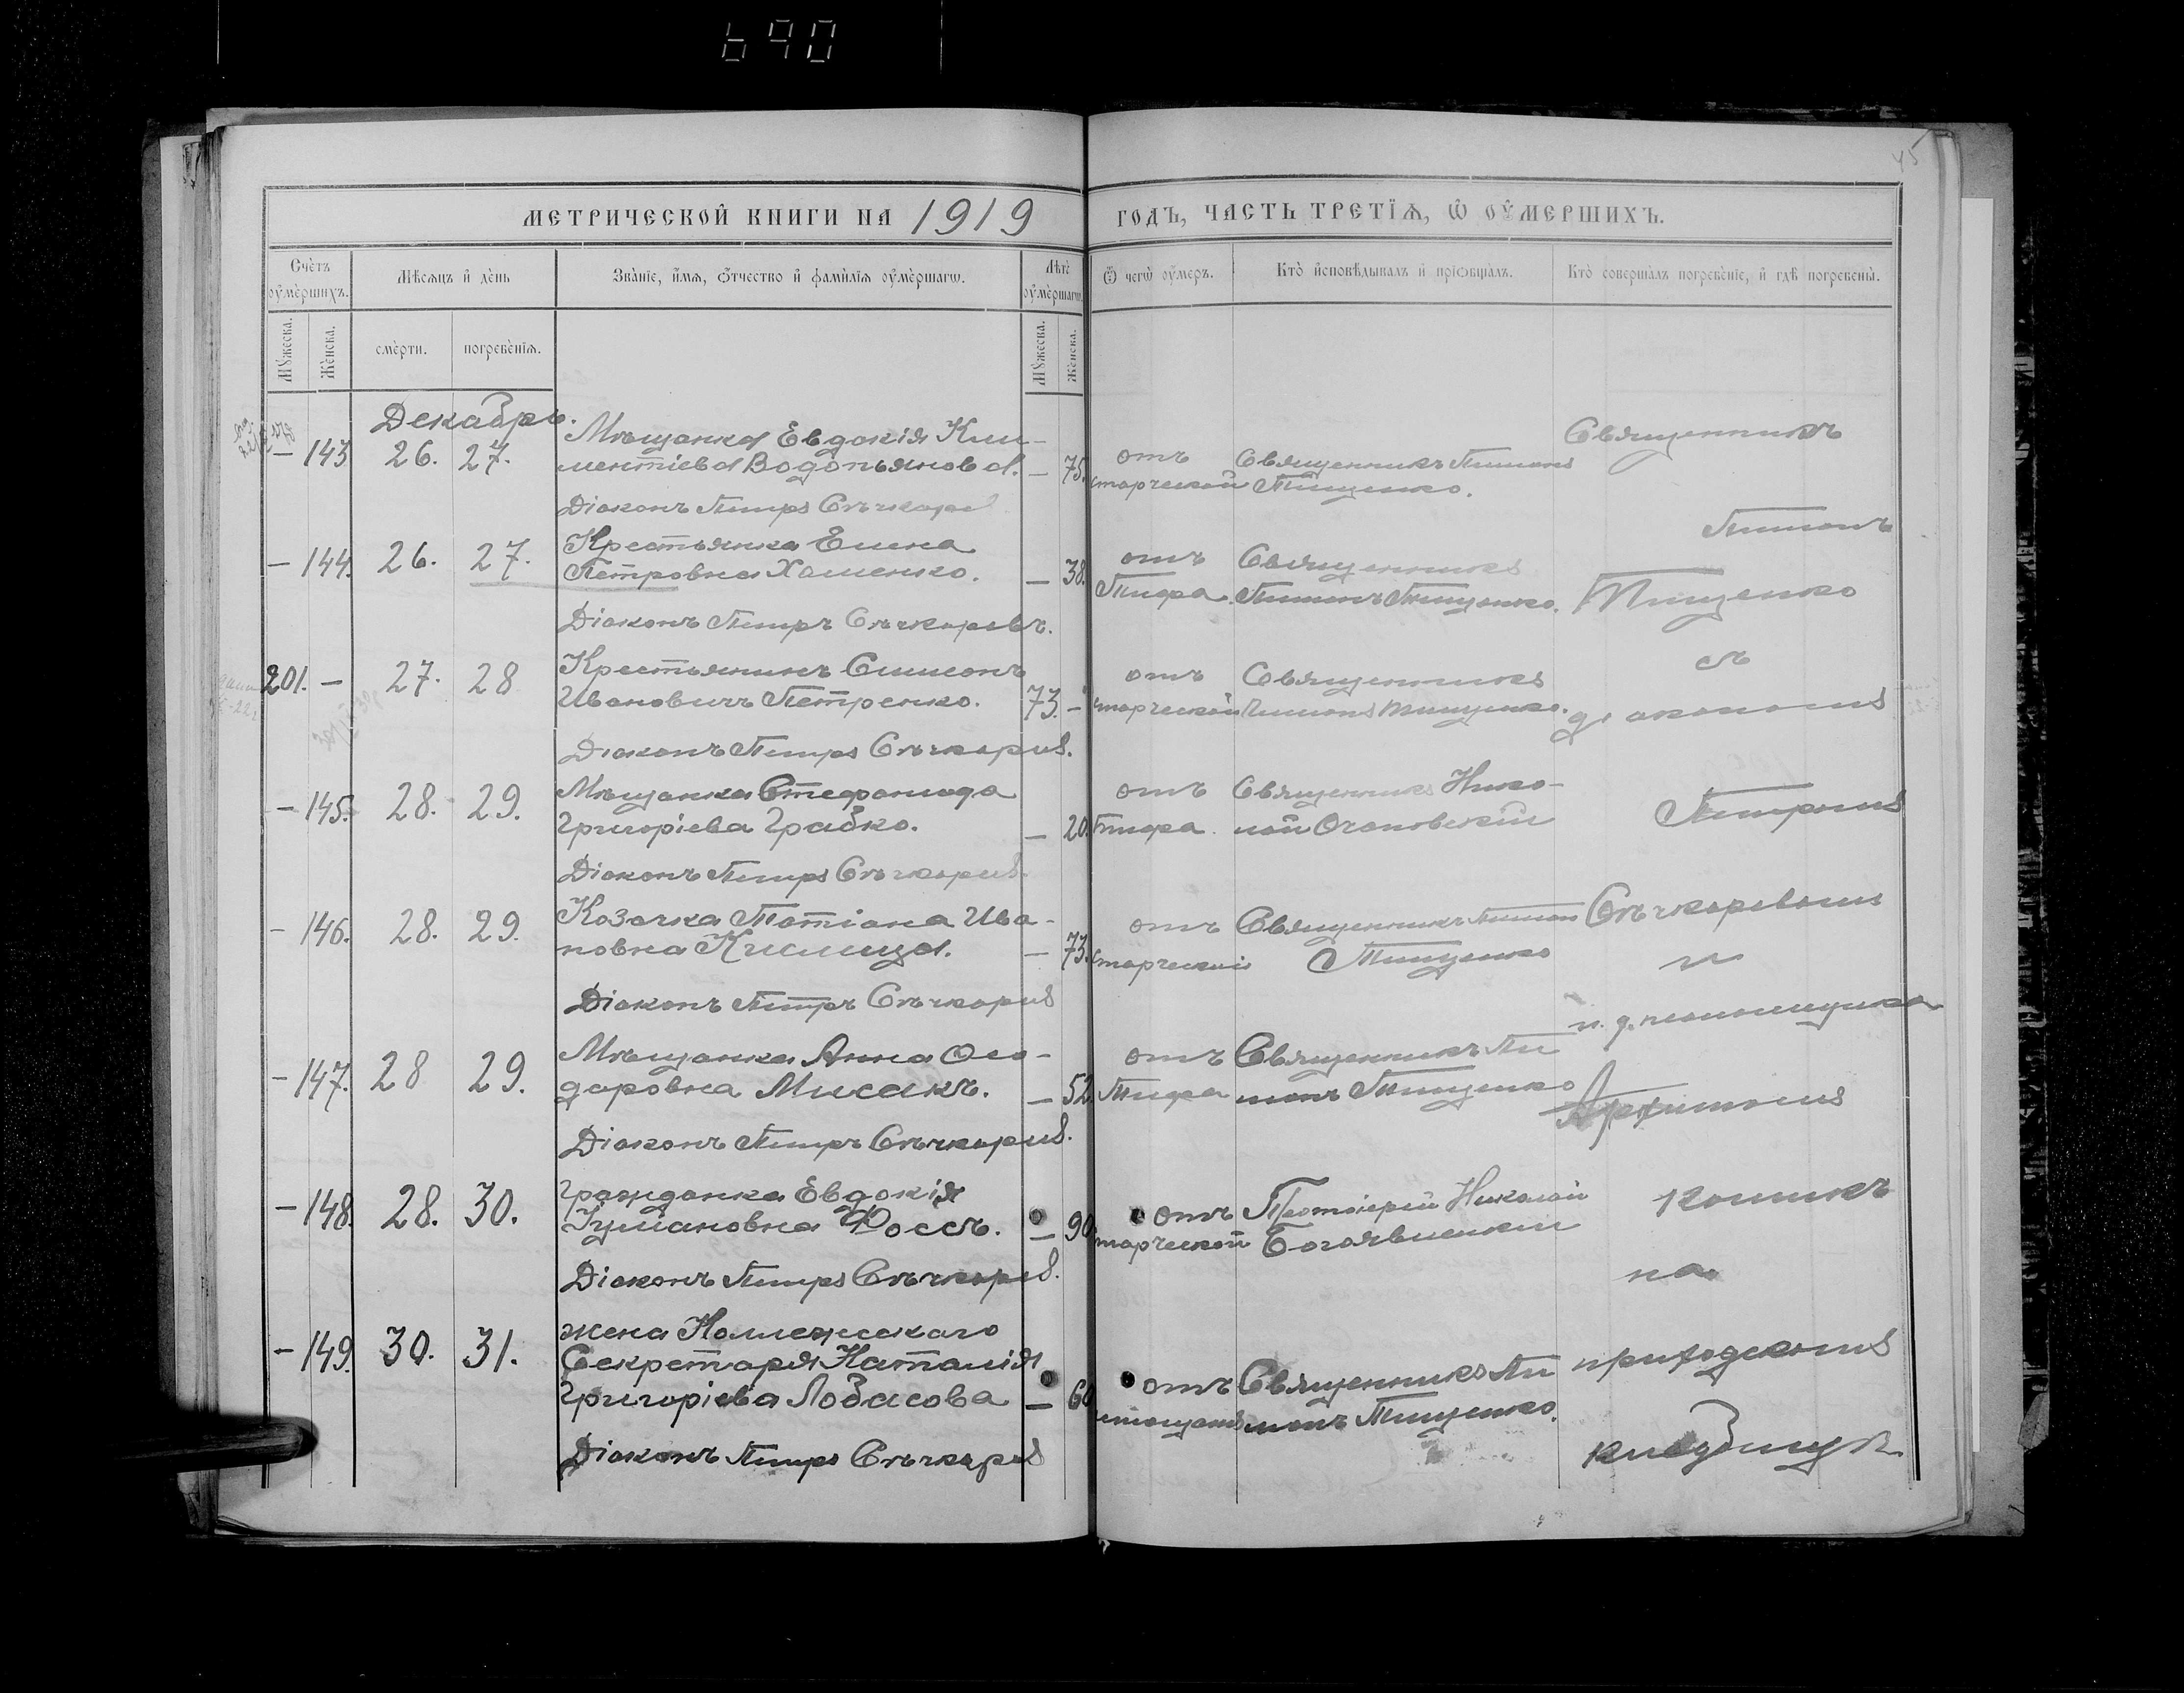 690
45
МЕТРИЧЕСКОЙ КНИГИ НА 1919
ГОДЪ, ЧАСТЬ ТРЕТІѦ, Ѡ ОУМЕРШИХЪ.
Счетъ оумершихъ.
Мѣсяцъ и день
Званіе, имя, отчество и фамилія оумершагω.
Лѣта оумершагω.
Ѿ чегω оумеръ.
Кто исповѣдывалъ и пріобщалъ.
Кто совершалъ погребеніе, и гдѣ погребены.
Мужеска.
Женска.
смерти.
погребенія.
Мужеска.
Женска.
Декабрь.
— 143 26. 27.
Мѣщанка Евдокія Кли-
ментіева Водопьянова. — 75.
отъ
старческой
Священникъ Пимонъ
Тищенко.
Діаконъ Петръ Сѣчкарев
— 144. 26. 27.
Крестьянка Елена
Петровна Хоменко. — 38.
отъ
Тифа
Священникъ
Пимонъ Тищенко.
Діаконъ Петръ Сѣчкаревъ.
201. — 27. 28
Крестьянинъ Симеонъ
Ивановичъ Петренко. 73. —
отъ
старческой
Священникъ
Пимонъ Тищенко.
Діаконъ Петръ Сѣчкаревъ.
— 145. 28. 29.
Мѣщанка Стефанида
Григоріева Грабко. — 20.
отъ
Тифа
Священникъ Нико-
лай Очаповскій
Діаконъ Петръ Сѣчкаревъ.
— 146. 28. 29.
Козачка Татіана Ива-
новна Кислица. — 73.
отъ
старческой
Священникъ Пимон
Тищенко
Діаконъ Петръ Сѣчкаревъ
— 147. 28 29.
Мѣщанка Анна Ѳео-
доровна Мисакъ. — 52.
отъ
Тифа
Священникъ Пи
монъ Тищенко
Діаконъ Петръ Сѣчкаревъ.
— 148. 28. 30.
Гражданка Евдокія
Іуліановна Фоссъ. — 90
отъ
старческой
Протоіерей Николай
Богоявленскій
Діаконъ Петръ Сѣчкаревъ.
— 149. 30. 31.
жена Коллежскаго
Секретаря Наталія
Григоріева Лобасова — 60
отъ
Священникъ Пи
монъ Тищенко.
Діаконъ Петръ Сѣчкаревъ
Священникъ
Пимонъ
Тищенко
съ
діакономъ
Петромъ
Сѣчкаревымъ
и
и. д. псаломщика
на
приходскомъ
кладбищѣ.